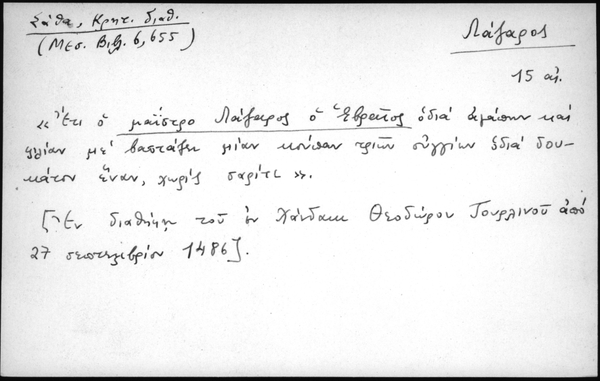 Σάθα, Κρητ. διαθ.
(Μεσ. Βιβ. 6, 655)
Λάζαρος
15 αἰ.
« Ἔτι ὁ μαΐστρο Λάζαρος ὁ Ἑβραῖος ὁδιά ἀμάχην καί
φιλίαν μέ βαστάζει μίαν κούπαν τριῶν οὐγγιῶν ὁδιά δου-
κάτον ἕναν, χωρίς χαρίτι ».
[Ἐν διαθήκῃ τοῦ ἐν Χάνδακι Θεοδώρου Γουρλινοῦ ἀπό
27 σεπτεμβρίου 1486].